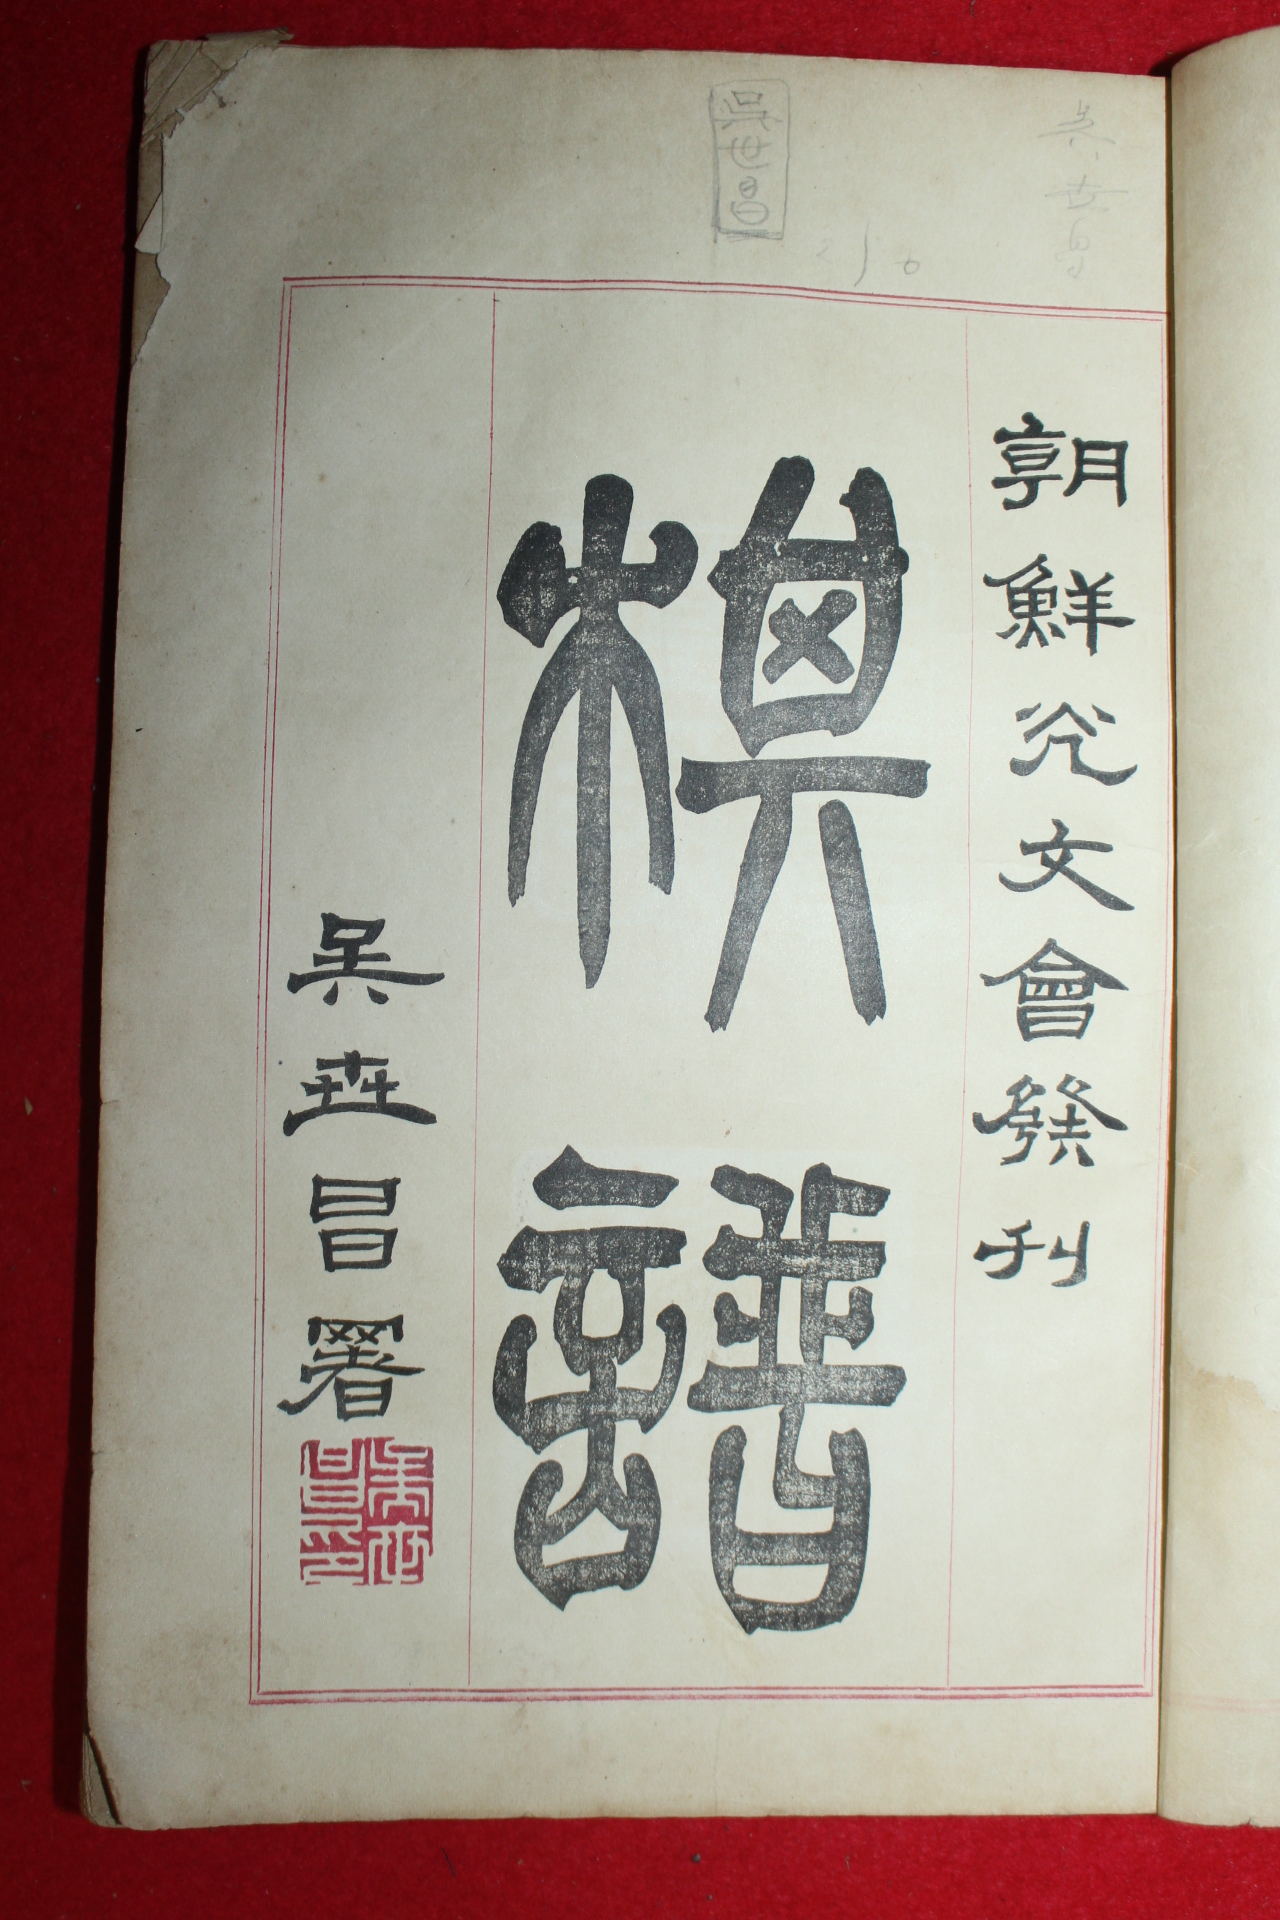 朝鮮光文會發刊
棋譜
吳世昌署
吳世昌印
吳世昌
吳世昌